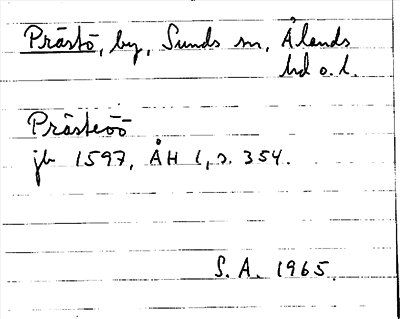 Prästö, by, Sunds sn, Ålands
hd o. l.
Prästeöö
jb 1597, ÅH 1, s. 354.
S. A. 1965.